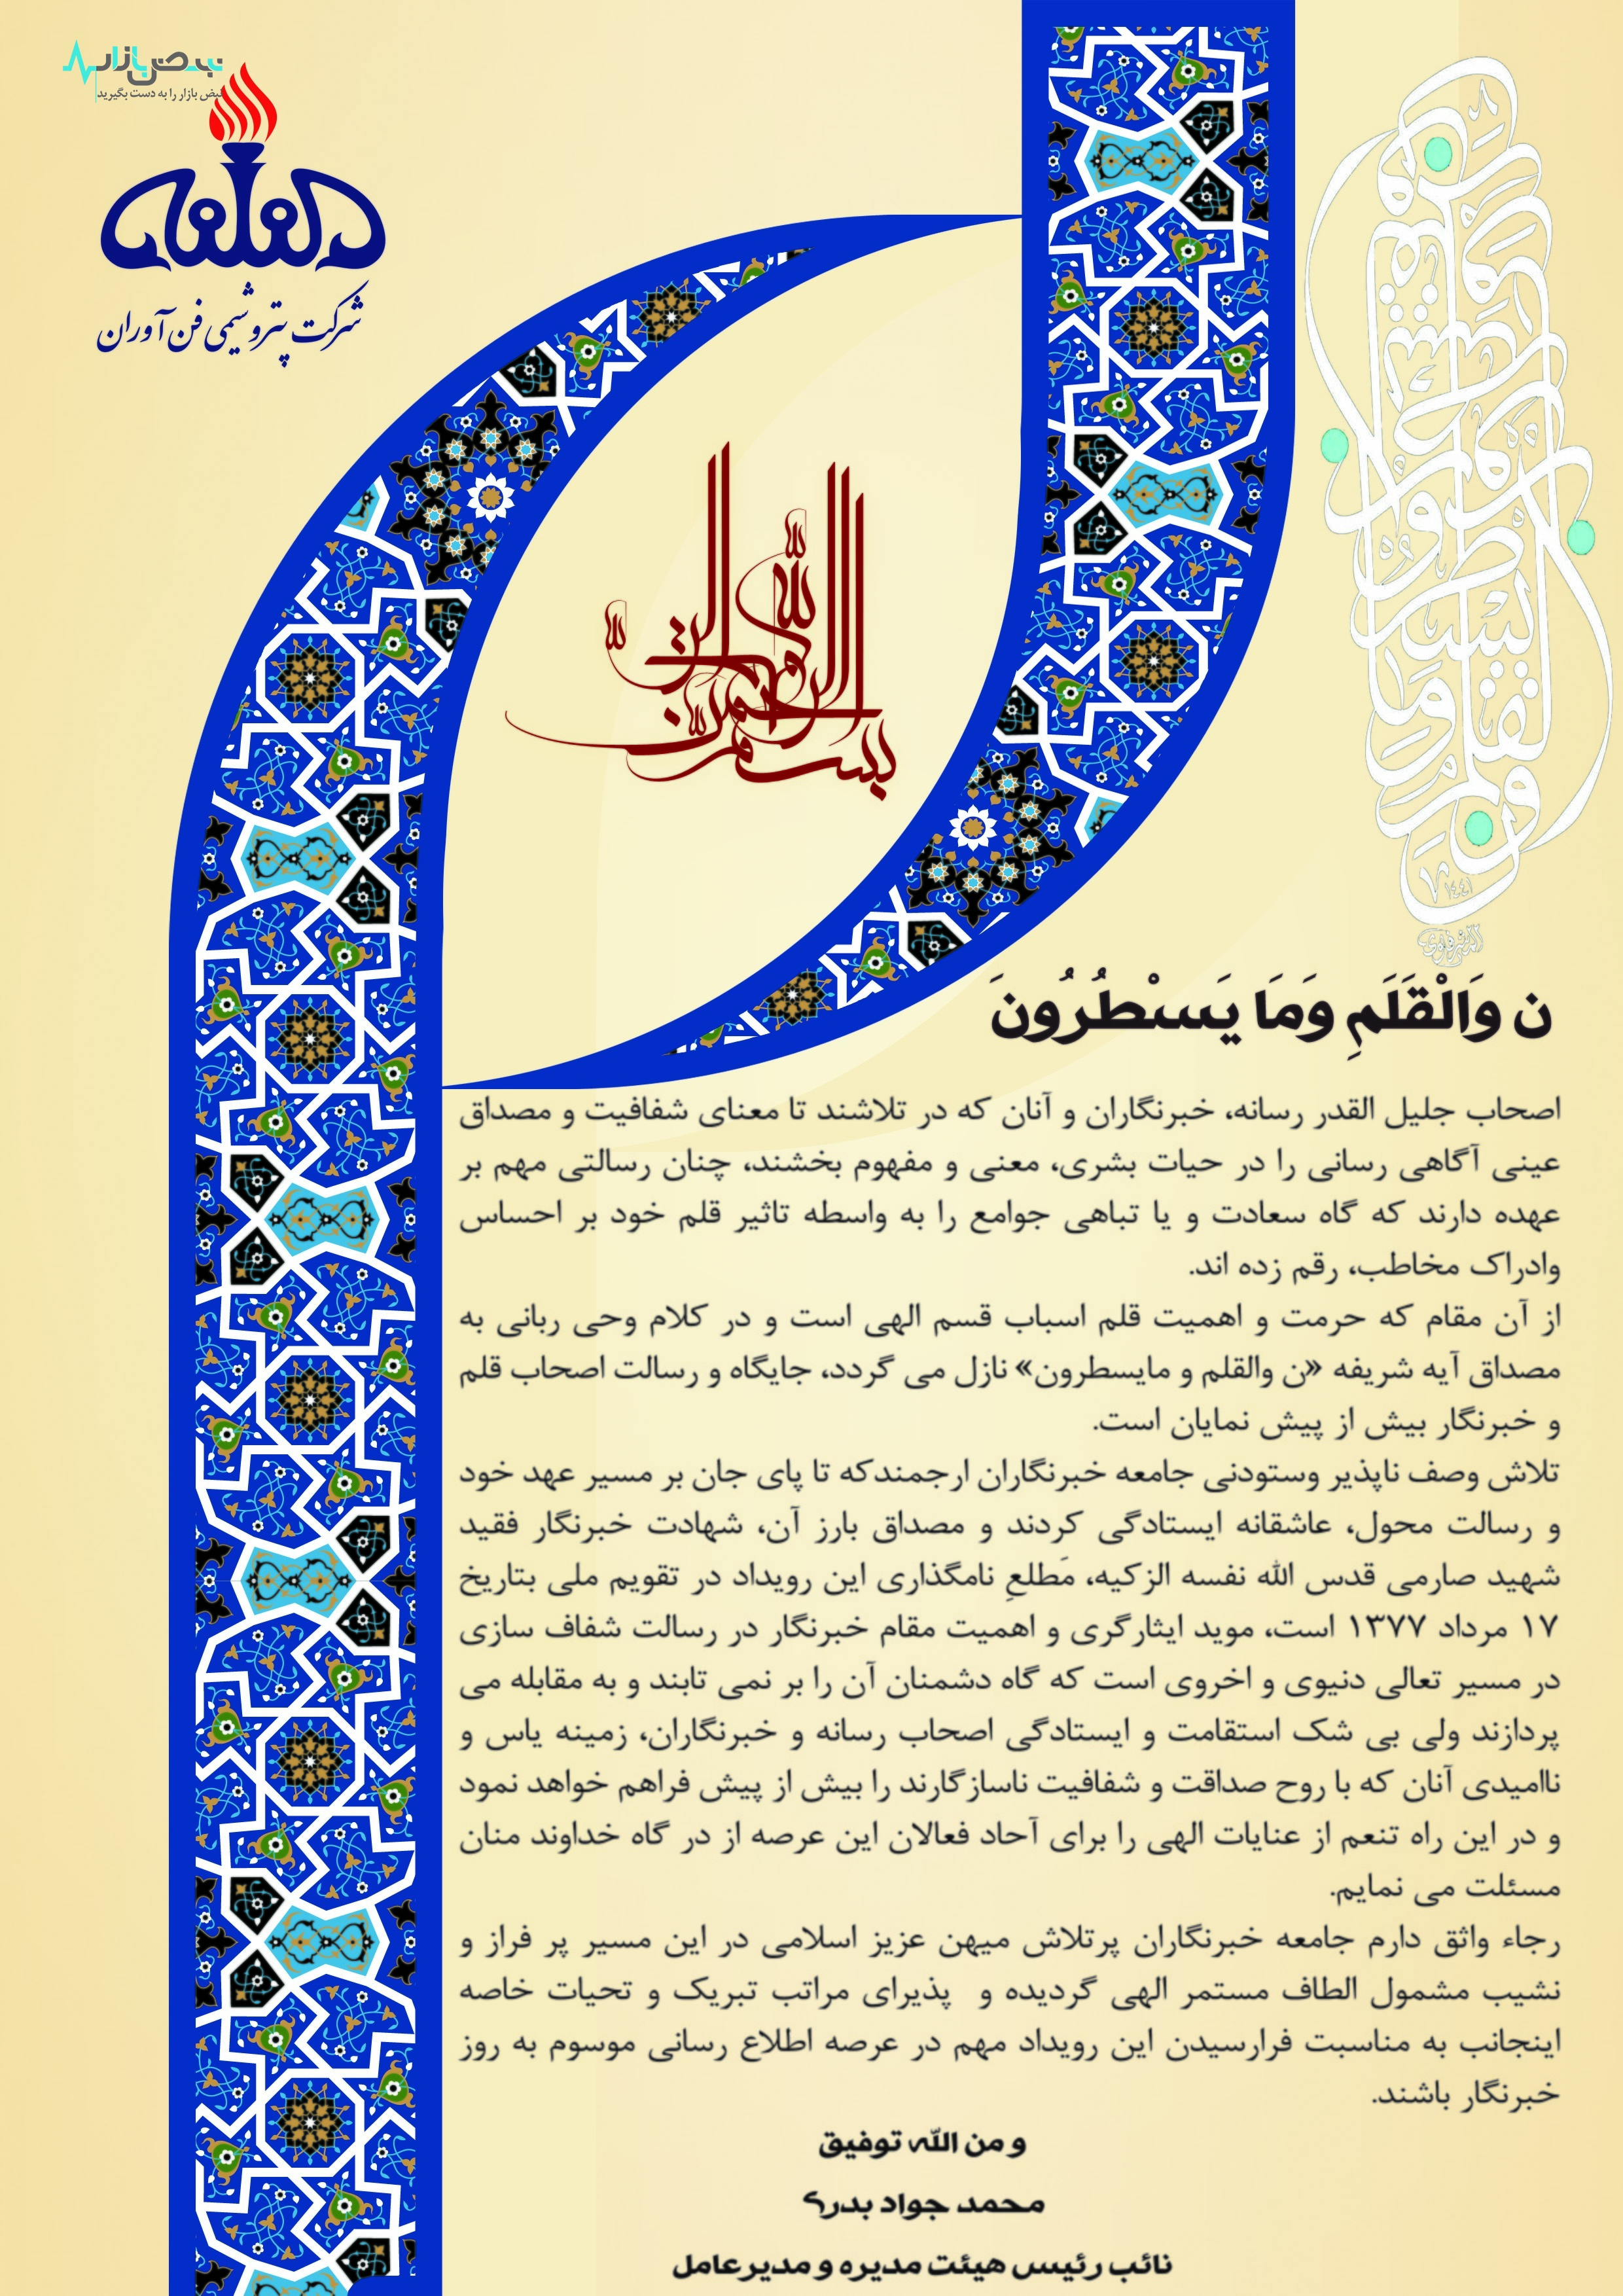 نبض بازار
نبض بازار را به دست بگیرید
شرکت پتروشیمی فن آوران
بسم الله الرحمن الرحیم
ن وَالْقَلَمِ وَمَا يَسْطُرُونَ
اصحاب جلیل القدر رسانه، خبرنگاران و آنان که در تلاشند تا معنای شفافیت و مصداق
عینی آگاهی رسانی را در حیات بشری، معنی و مفهوم بخشند، چنان رسالتی مهم بر
عهده دارند که گاه سعادت و یا تباهی جوامع را به واسطه تاثیر قلم خود بر احساس
وادراک مخاطب، رقم زده اند.
از آن مقام که حرمت و اهمیت قلم اسباب قسم الهی است و در کلام وحی ربانی به
مصداق آیه شریفه «ن والقلم و مایسطرون» نازل می گردد، جایگاه و رسالت اصحاب قلم
و خبرنگار بیش از پیش نمایان است.
تلاش وصف ناپذیر وستودنی جامعه خبرنگاران ارجمندکه تا پای جان بر مسیر عهد خود
و رسالت محول، عاشقانه ایستادگی کردند و مصداق بارز آن، شهادت خبرنگار فقید
شهید صارمی قدس الله نفسه الزکیه، مَطلعِ نامگذاری این رویداد در تقویم ملی بتاریخ
۱۷ مرداد ۱۳۷۷ است، موید ایثارگری و اهمیت مقام خبرنگار در رسالت شفاف سازی
در مسیر تعالی دنیوی و اخروی است که گاه دشمنان آن را بر نمی تابند و به مقابله می
پردازند ولی بی شک استقامت و ایستادگی اصحاب رسانه و خبرنگاران، زمینه یاس و
ناامیدی آنان که با روح صداقت و شفافیت ناسازگارند را بیش از پیش فراهم خواهد نمود
و در این راه تنعم از عنایات الهی را برای آحاد فعالان این عرصه از در گاه خداوند منان
مسئلت می نمایم.
رجاء واثق دارم جامعه خبرنگاران پرتلاش میهن عزیز اسلامی در این مسیر پر فراز و
نشیب مشمول الطاف مستمر الهی گردیده و پذیرای مراتب تبریک و تحیات خاصه
اینجانب به مناسبت فرارسیدن این رویداد مهم در عرصه اطلاع رسانی موسوم به روز
خبرنگار باشند.
و من الله توفیق
محمد جواد بدری
نائب رئیس هیئت مدیره و مدیرعامل